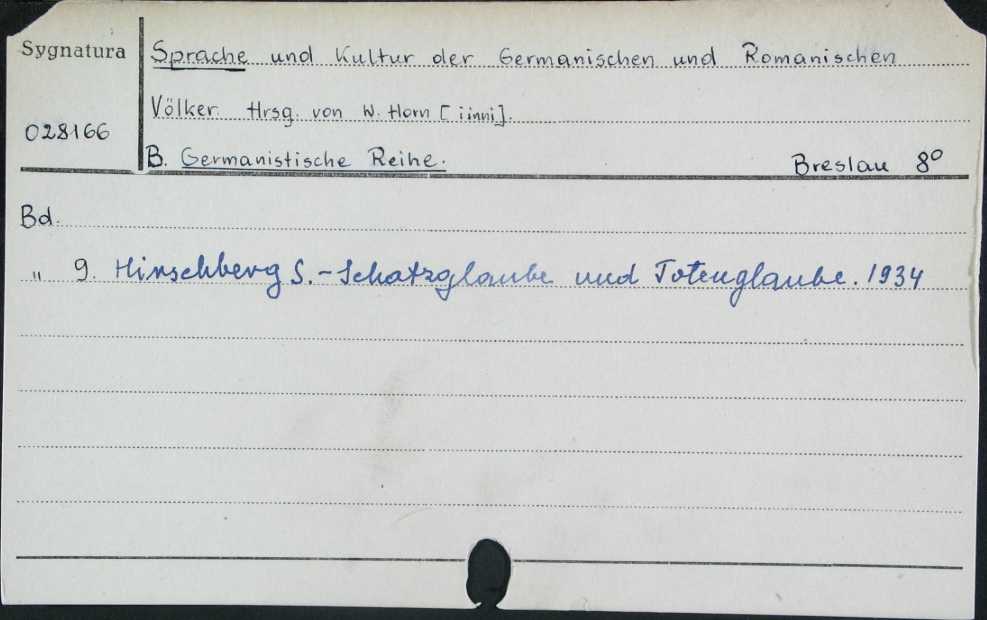 Sygnatura
Sprache und Kultur der Germanischen und Romanischen
Völker. Hrsg. von W. Horn [i inni].
028166
B. Germanistische Reihe. Breslau 8°
Bd.
" 9. Hirschberg S. - Schatzglaube und Totenglaube. 1934